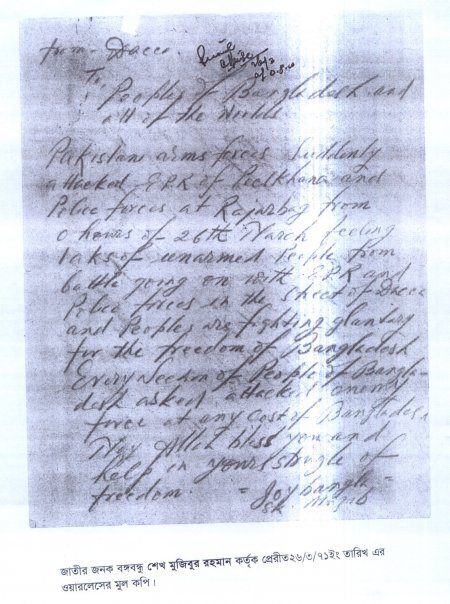 from - Dacca.
To
Peoples of Bangladesh and
all of the world.
Pakistani arms forces Suddenly
attacked E.P.R of Peelkhana and
Police forces at Rajarbag from
0 hours of 26th March
laks of unarmed People from
battle going on with E.P.R and
Police forces in the street of Dacca
and Peoples are fighting
for the freedom of Bangladesh
Every Section of People of Bangla-
desh asked attacked enemy
force at any cost of Bangladesh
May Allah bless you and
help in your struggle of
freedom. = Joy bangla =
Sk. Mujib
জাতীর জনক বঙ্গবন্ধু শেখ মুজিবুর রহমান কর্তৃক প্রেরীত২৬/৩/৭১ইং তারিখ এর
ওয়ারলেসের মুল কপি।